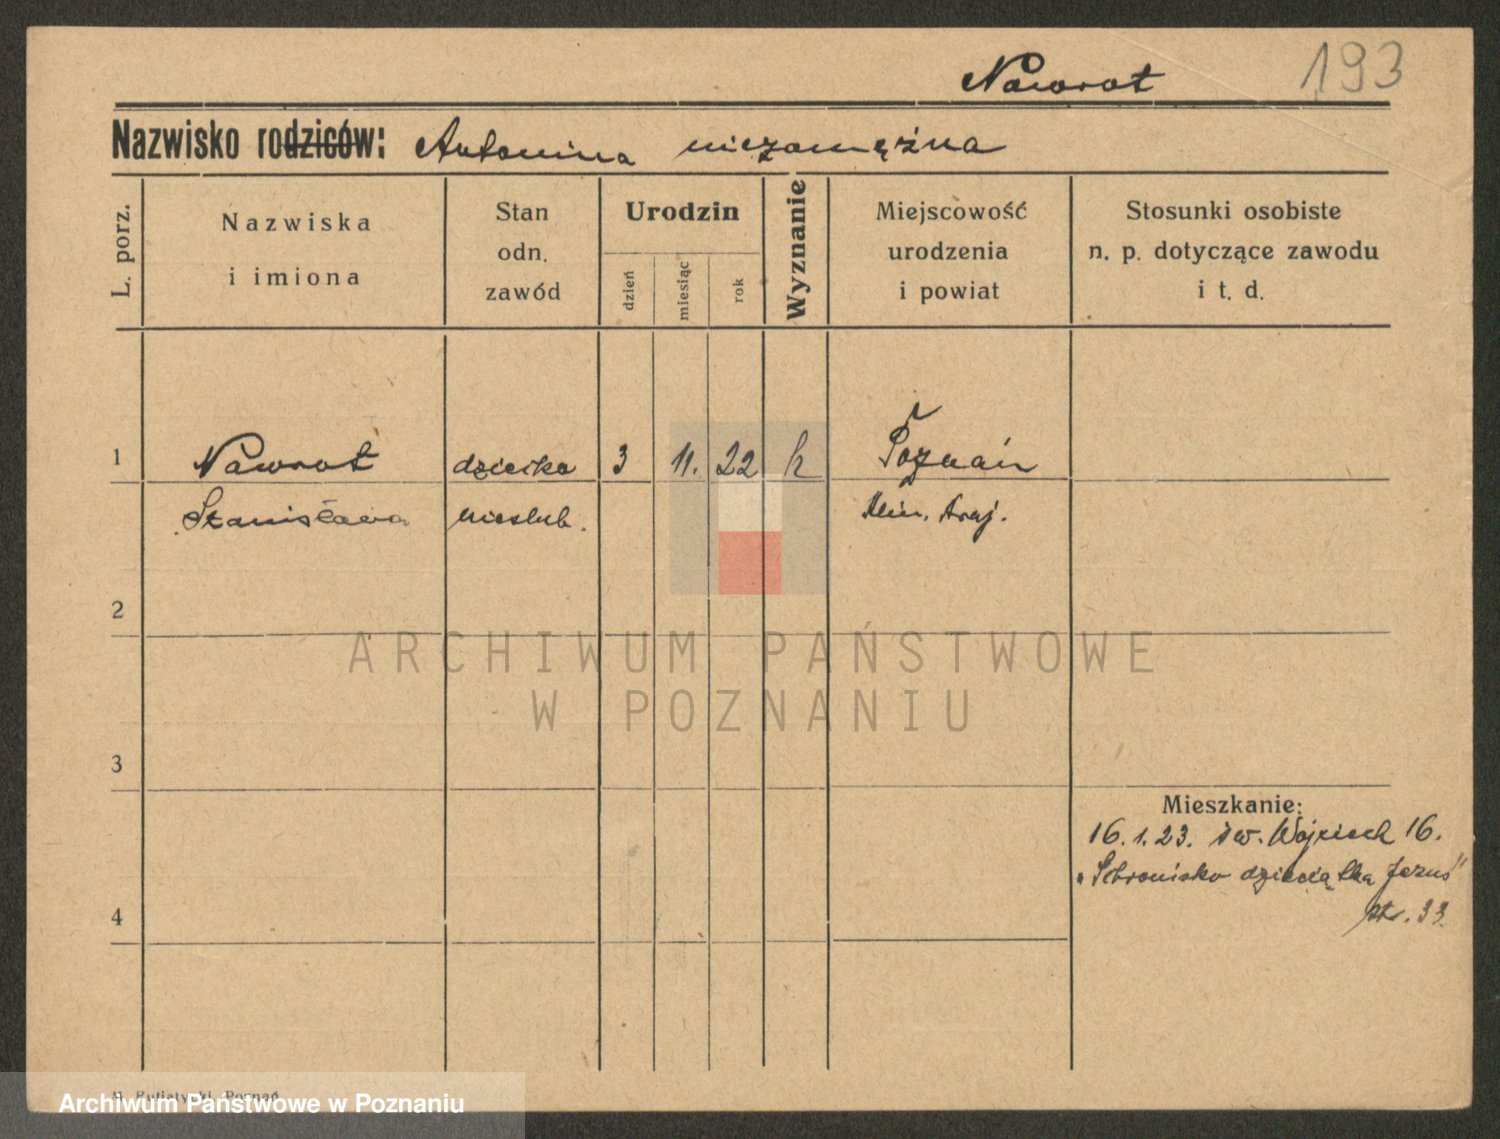 193
Nawrot
Nazwisko rodziców: Antonina niezamężna
L. porz.
Nazwiska
i imiona
Stan
odn.
zawód
Urodzin
dzień
miesiąc
rok
Wyznanie
Miejscowość
urodzenia
i powiat
Stosunki osobiste
n. p. dotyczące zawodu
i t. d.
1 Nawrot dziecko 3 11. 22 k Poznań
Stanisława nieslub.
2
3
Mieszkanie:
16.1.23. św. Wojciech 16.
"Schronisko dzieciątka Jezus"
str. 33.
4
ARCHIWUM PAŃSTWOWE
W POZNANIU
Poznań
Archiwum Państwowe w Poznaniu